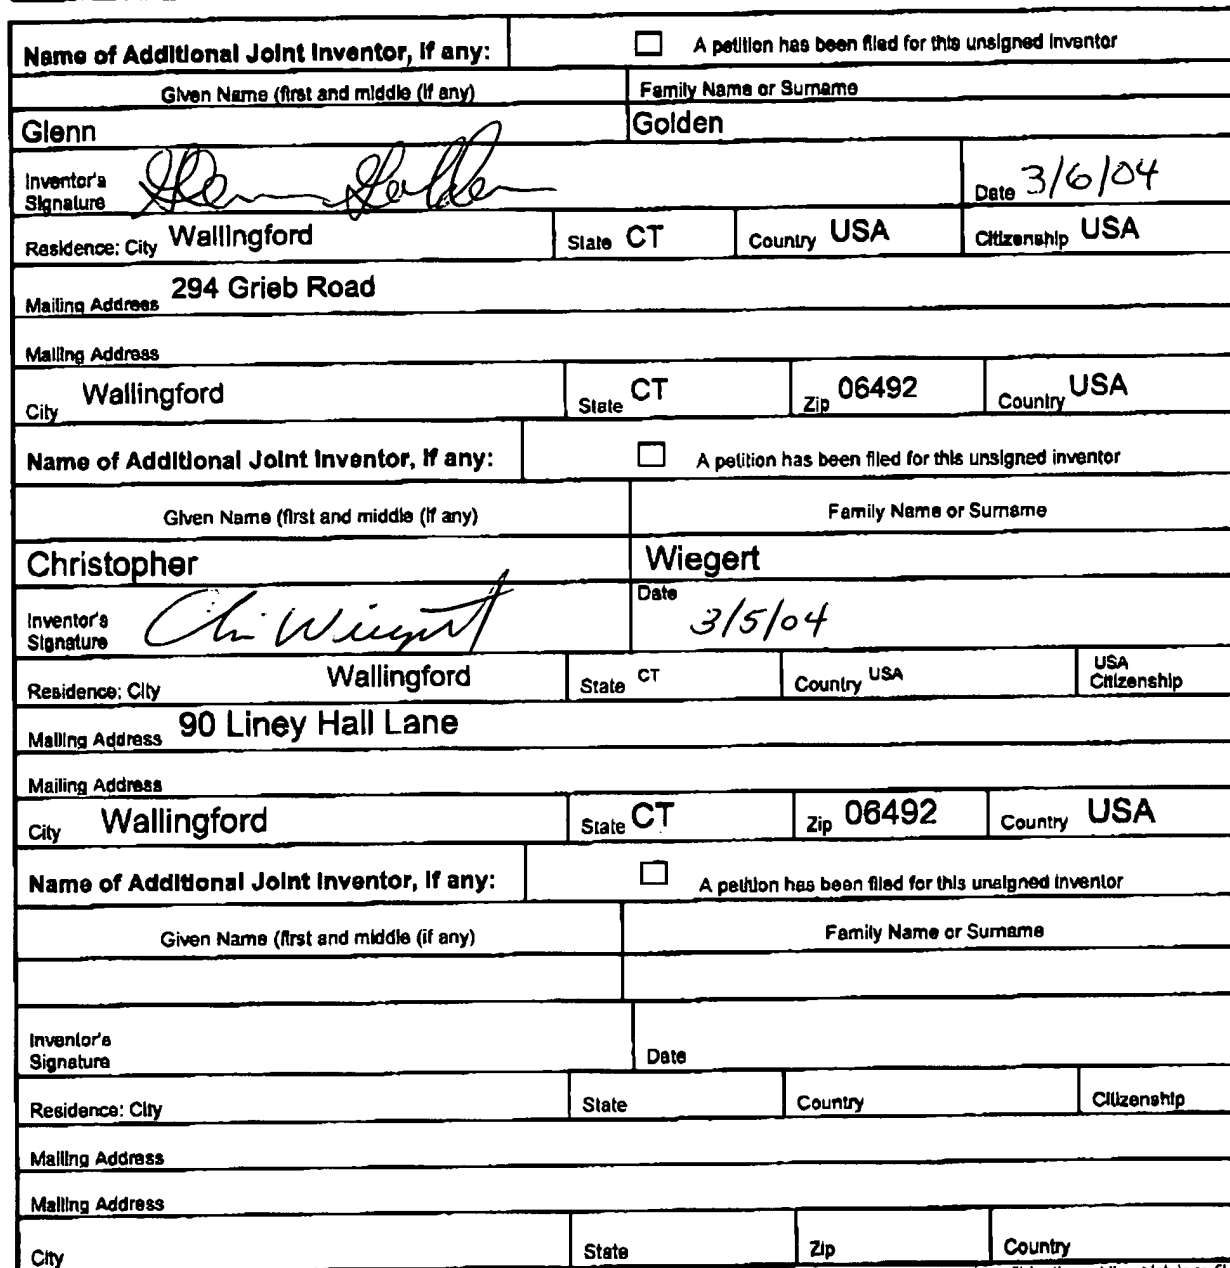 Name of Additional Joint Inventor, if any: ☐ A petition has been filed for this unsigned inventor
Given Name (first and middle (if any) Family Name or Surname
Glenn Golden
Inventor's Signature Glenn Golden Date 3/6/04
Residence: City Wallingford State CT Country USA Citizenship USA
Mailing Address 294 Grieb Road
Mailing Address
City Wallingford State CT Zip 06492 Country USA
Name of Additional Joint Inventor, if any: ☐ A petition has been filed for this unsigned inventor
Given Name (first and middle (if any) Family Name or Surname
Christopher Wiegert
Inventor's Signature Chris Wiegert Date 3/5/04
Residence: City Wallingford State CT Country USA USA Citizenship
Mailing Address 90 Liney Hall Lane
Mailing Address
City Wallingford State CT Zip 06492 Country USA
Name of Additional Joint Inventor, if any: ☐ A petition has been filed for this unsigned inventor
Given Name (first and middle (if any) Family Name or Surname
Inventor's Signature Date
Residence: City State Country Citizenship
Mailing Address
Mailing Address
City State Zip Country